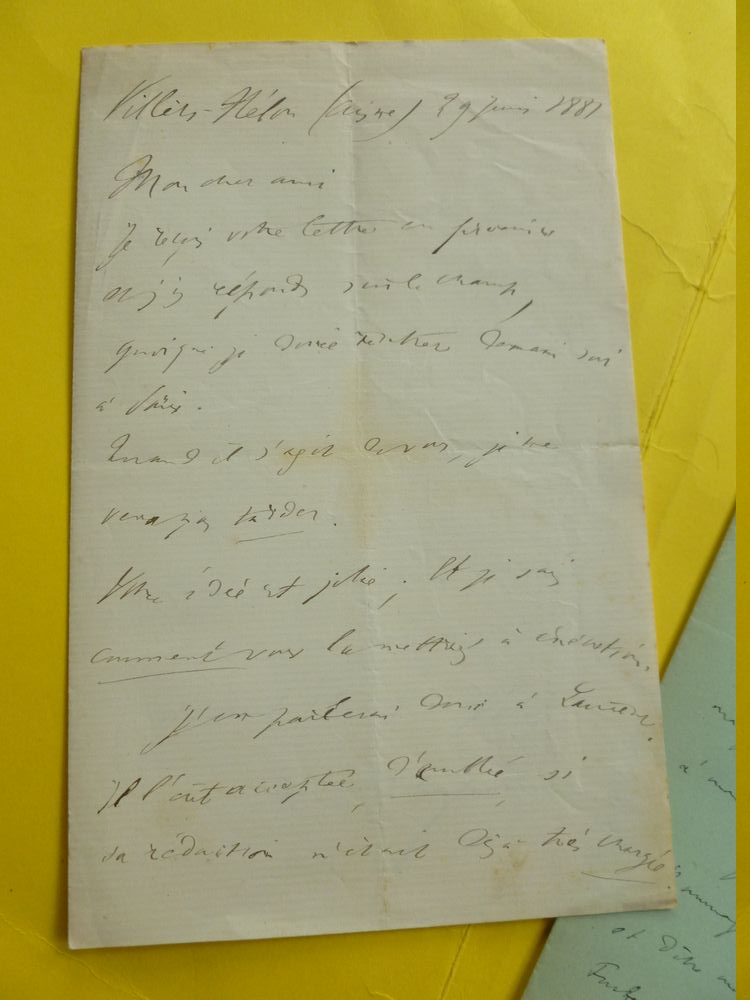 Villers-Hélon (Aisne) 29 Juin 1881
Mon cher ami
Je reçois votre lettre en province
et j'y réponds sur le champ,
quoique je doive rentrer demain soir
à Paris.
Quand il s'agit de vous, je ne
veux pas tarder.
Votre idée est jolie, et je sais
comment vous la mettrez à exécution.
J'en parlerai donc à Laurent.
Il l'eut acceptée, d'emblée, si
sa rédaction n'était déjà très chargée.
à
et